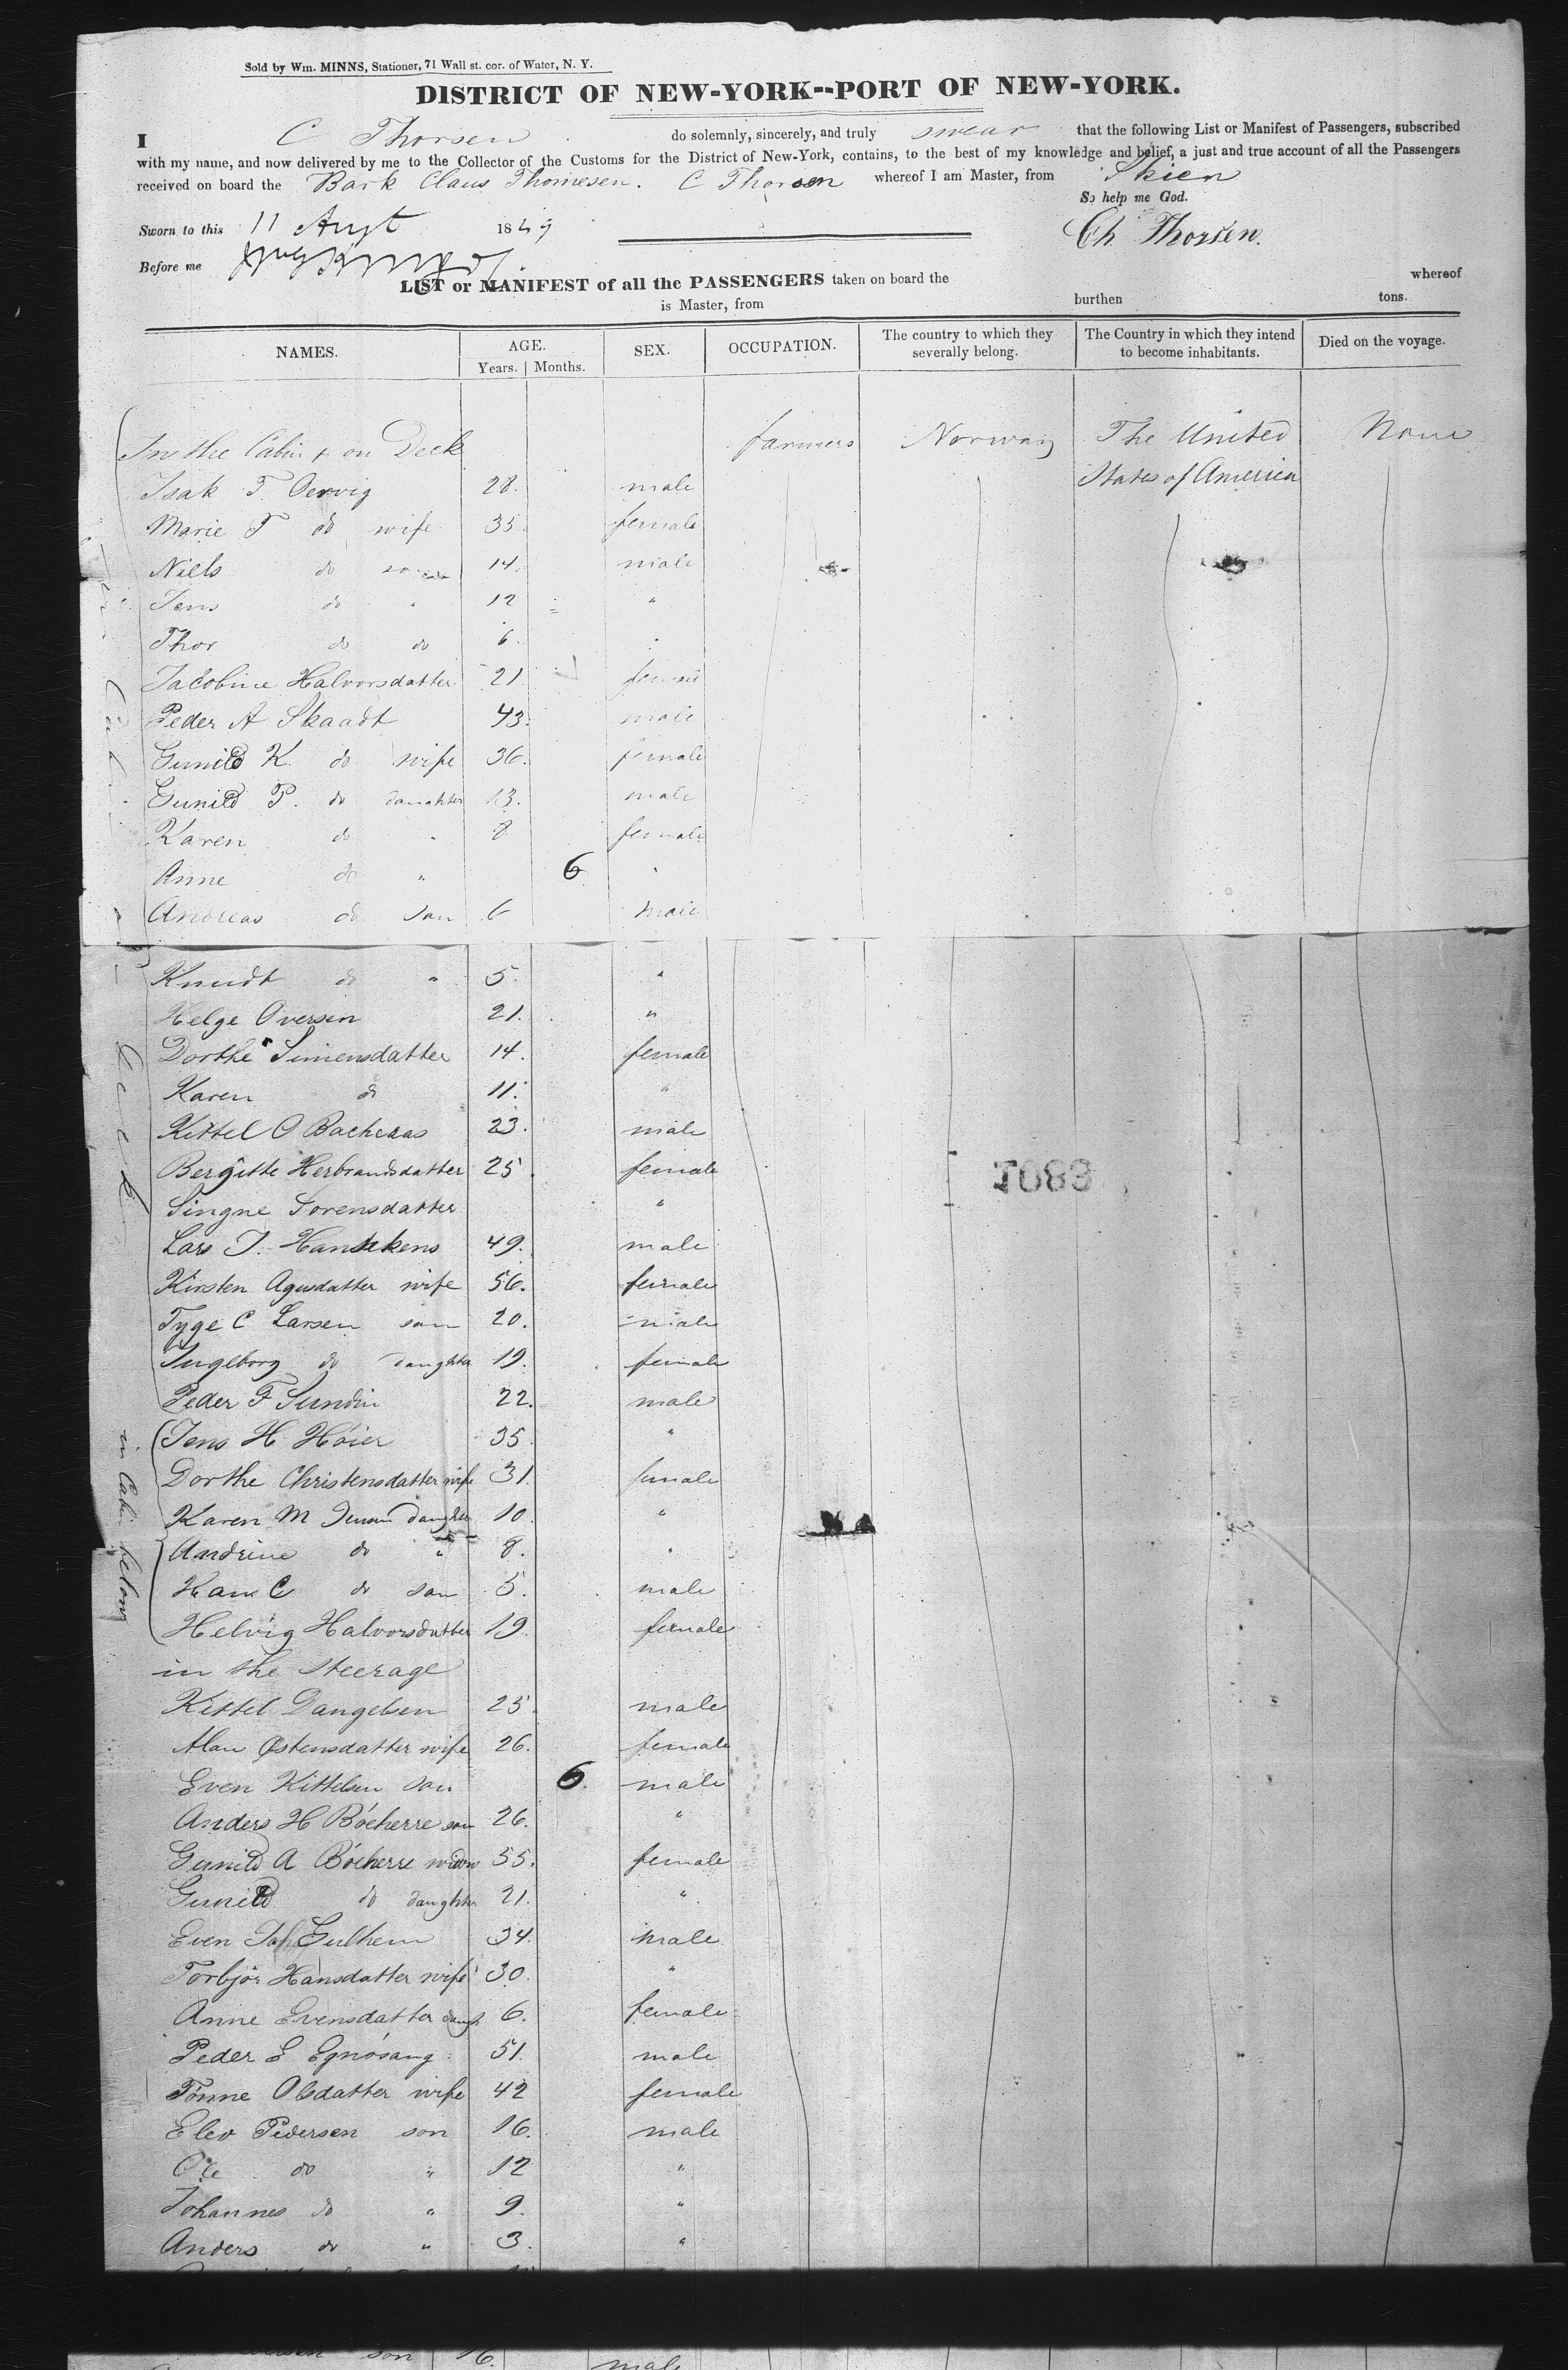 Sold by Wm. MINNS, Stationer, 71 Wall st. cor. of Water, N. Y.
DISTRICT OF NEW-YORK--PORT OF NEW-YORK.
I C Thorsen do solemnly, sincerely, and truly swear that the following List or Manifest of Passengers, subscribed
with my name, and now delivered by me to the Collector of the Customs for the District of New-York, contains, to the best of my knowledge and belief, a just and true account of all the Passengers
received on board the Bark Claus Thomesen. C Thorsen whereof I am Master, from Skien
So help me God.
Sworn to this 11 Augt 1849
Ch Thorsen.
Before me
LIST or MANIFEST of all the PASSENGERS taken on board the whereof
is Master, from burthen tons.
NAMES. AGE. Years. Months. SEX. OCCUPATION. The country to which they severally belong. The Country in which they intend to become inhabitants. Died on the voyage.
In the Cabin & on Deck farmers Norway The United States of America None
Isak T. Oervig 28. male
Marie T do wife 35. female
Niels do son 14. male
Jens do " 12 "
Thor do do 6. "
Jacobine Halvorsdatter 21 female
Peder A Skaadt 43. male
Gunild K. do wife 36. female
Gunild P. do daughter 13. male
Karen do " 8 female
Anne do " 6 "
Andreas do son 6 male
Knudt do " 5. "
Helge Oversen 21. "
Dorthe Simensdatter 14. female
Karen do 11. "
Kittel O Bacheaas 23. male
Bergitte Herbrandsdatter 25 female
Singne Sorensdatter "
Lars J. 49. male
Kirsten Agusdatter wife 56. female
Tyge C Larsen son 20. male
Ingeborg do daughter 19. female
Peder F Sundin 22. male
Jens H Höier 35. "
Dorthe Christensdatter wife 31. female
Karen M Jensen daughter 10. "
Andrine do " 8. "
Hans C do son 5. male
Helvig Halvorsdatter 19 female
in Cabin below
in the Steerage
Kittel Dangelsen 25. male
Østensdatter wife 26. female
Even Kittelsen son 6. male
Anders H Böcherre son 26. "
Gunild A Böcherre widow 55. female
Gunild do daughter 21. "
Even Gulhem 34 male
Torbjör Hansdatter wife 30. "
Anne Evensdatter daugt 6. female
Peder E Egnösang 51. male
Tönne Olsdatter wife 42 female
Elev Pedersen son 16. male
Ole do " 12 "
Johannes do " 9. "
Anders do " 3. "
1083
son 16. male